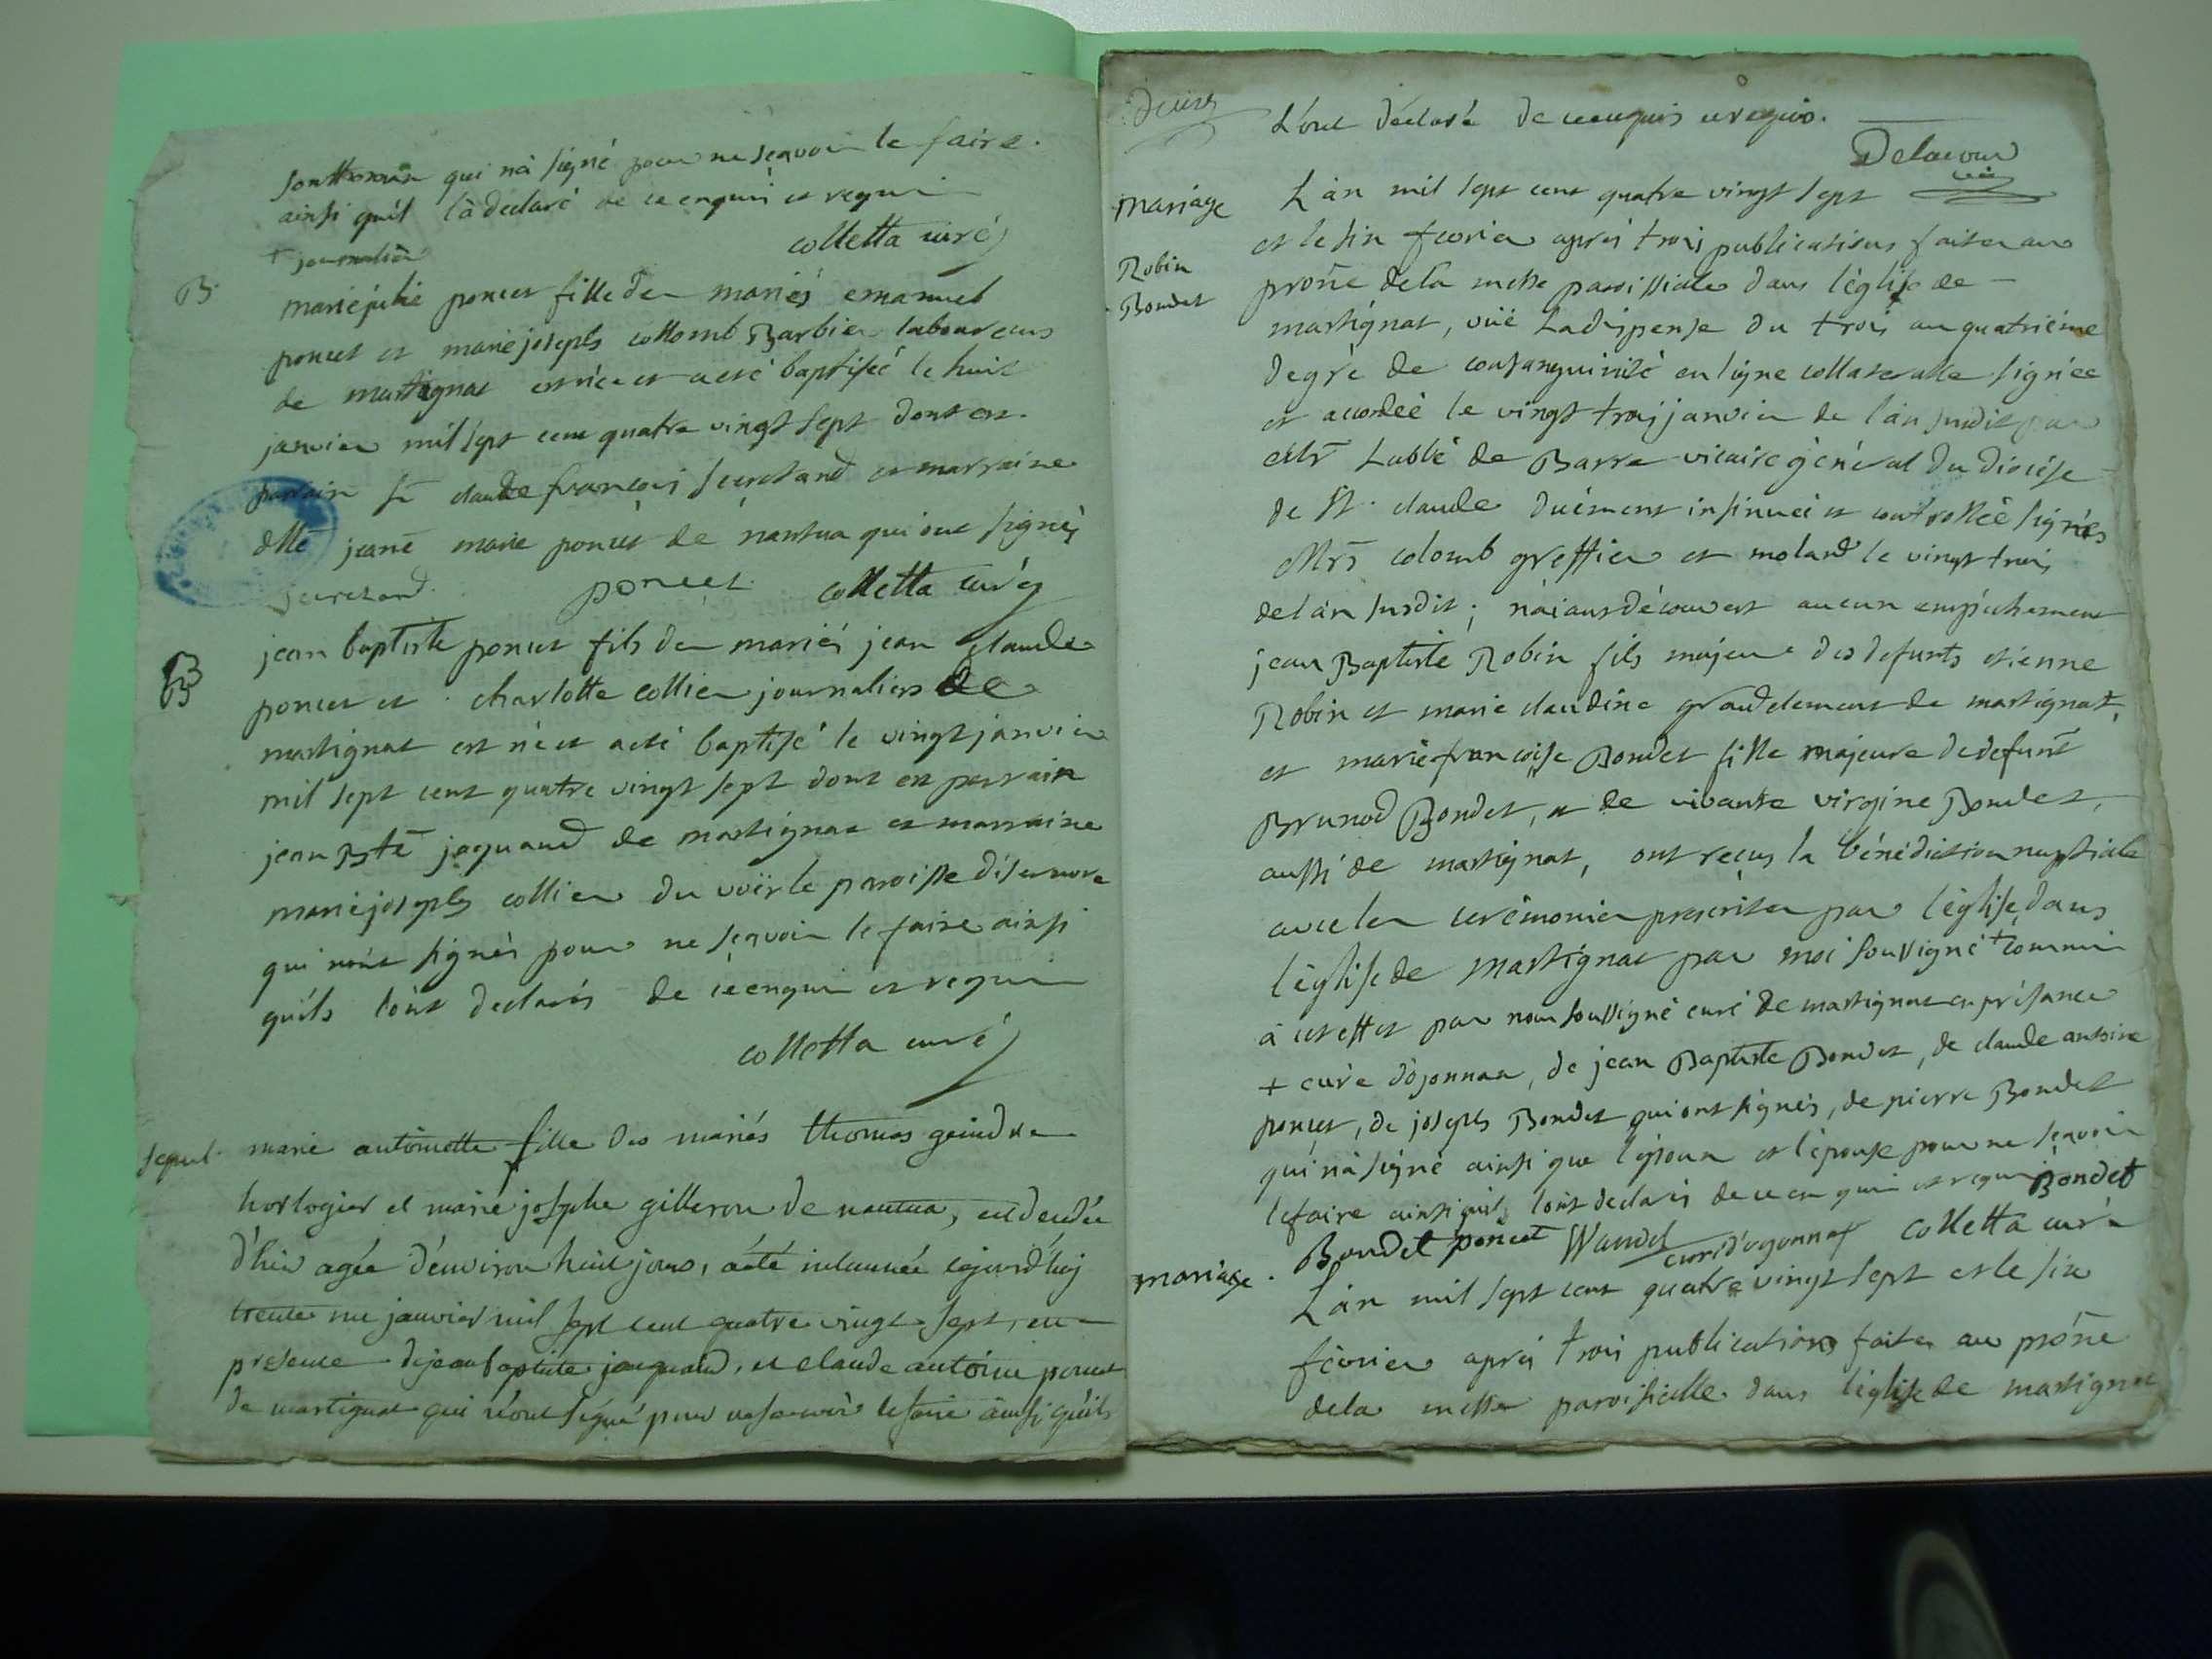 qui n'a signé pour ne sçavoir le faire.
ainsi qu'il l'à declaré de ce enquis et requis
colletta curé
+ journalier
B.
marie julie poncet fille des mariés emanuel
poncet et marie joseph collomb Barbier laboureurs
de martignat est née et a eté baptisée le huit
janvier mil sept cent quatre vingt sept dont est
parrain sr claude françois secretand et marraine
dlle jeane marie poncet de nantua qui ont signés
secretand. poncet colletta curé
B
jean baptiste poncet fils des mariés jean claude
poncet et charlotte collier journaliers de
martignat est né et a eté baptisé le vingt janvier
mil sept cent quatre vingt sept dont est parrain
jean Bte jaquand de martignat et marraine
marie joseph collier du voërle paroisse d'isernore
qui n'ont signés pour ne sçavoir le faire ainsi
qu'ils l'ont declarés de ce enquis et requis
colletta curé
sepul. marie antoinette fille des mariés thomas geindre
horlogier et marie josephe gilleron de nantua, est decedée
d'hier agée d'environ huit jours, a été inhumée cejourd'huy
trente un janvier mil sept cent quatre vingt sept, en
presence de jean baptiste jaquand, et claude antoine poncet
de martignat qui n'ont signé pour ne sçavoir le faire ainsi qu'ils
L'ont déclaré de ce enquis et requis.
Delacour
mariage L'an mil sept cent quatre vingt sept
et le six fevrier après trois publications faites au
Robin
Bondet
prône de la messe paroissiale dans l'église de
martignat, vüe La dispense du trois au quatriéme
degré de consanguinité en ligne collateralle signée
et accordée le vingt trois janvier de l'an susdit par
Mr L'abbé de Barre vicaire général du diocése
de St. claude duëment insinuée et controllée signés
Mrs colomb greffier et moland le vingt trois
de l'an susdit; n'aiant découvert aucun empêchement
jean Baptiste Robin fils majeur des defunts etienne
Robin et marie claudine grandclement de martignat,
et marie françoise Bondet fille majeure de defunt
Brunod Bondet, et de vivante virgine Bondet,
aussi de martignat, ont reçus la bénédiction nuptiale
avec les cerémonies prescrites par l'église, dans
l'église de martignat par moi soussigné + commis
à cet effet par nous soussigné curé de martignat en présance
+ curé d'ojonnax, de jean Baptiste Bondet, de claude antoine
poncet, de joseph Bondet qui ont signés, de pierre Bondet
qui n'a signé ainsi que l'epoux et l'épouse pour ne sçavoir
le faire ainsi qu'ils l'ont declarés de ce en quis et requis Bondet
Bondet poncet Wandel curé d'oyonnax colletta curé
mariage. L'an mil sept cent quatre vingt sept et le six
fevrier après trois publications faites au prône
de la messe paroissialle dans l'église de martignat